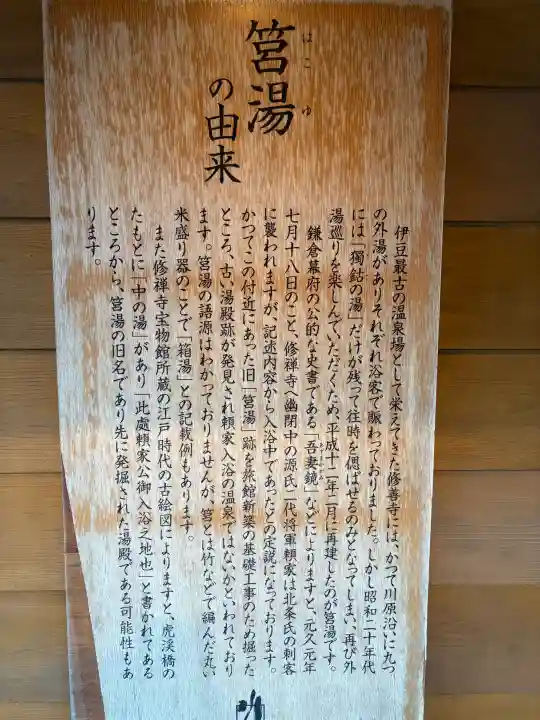 筥湯
はこゆ
の由来
伊豆最古の温泉場として栄えてきた修善寺には、かつて川原沿いに九つ
の外湯がありそれぞれ浴客で賑わっておりました。しかし昭和二十年代
には「獨鈷の湯」だけが残って往時を偲ばせるのみとなってしまい、再び外
湯巡りを楽しんでいただくため、平成十二年二月に再建したのが筥湯です。
鎌倉幕府の公的な史書である「吾妻鏡」などによりますと、元久元年
七月十八日のこと、修禅寺へ幽閉中の源氏二代将軍頼家は北条氏の刺客
に襲われますが、記述内容から入浴中であったとの定説になっております。
かつてこの付近にあった旧「筥湯」跡を旅館新築の基礎工事のため掘った
ところ、古い湯殿跡が発見され頼家入浴の温泉ではないかといわれており
ます。筥湯の語源はわかっておりませんが、筥とは竹などで編んだ丸い
米盛り器のことで「箱湯」との記載例もあります。
また修禅寺宝物館所蔵の江戸時代の古絵図によりますと、虎渓橋の
たもとに「中の湯」があり「此處頼家公御入浴之地也」と書かれてある
ところから、筥湯の旧名であり先に発掘された湯殿である可能性もあ
ります。